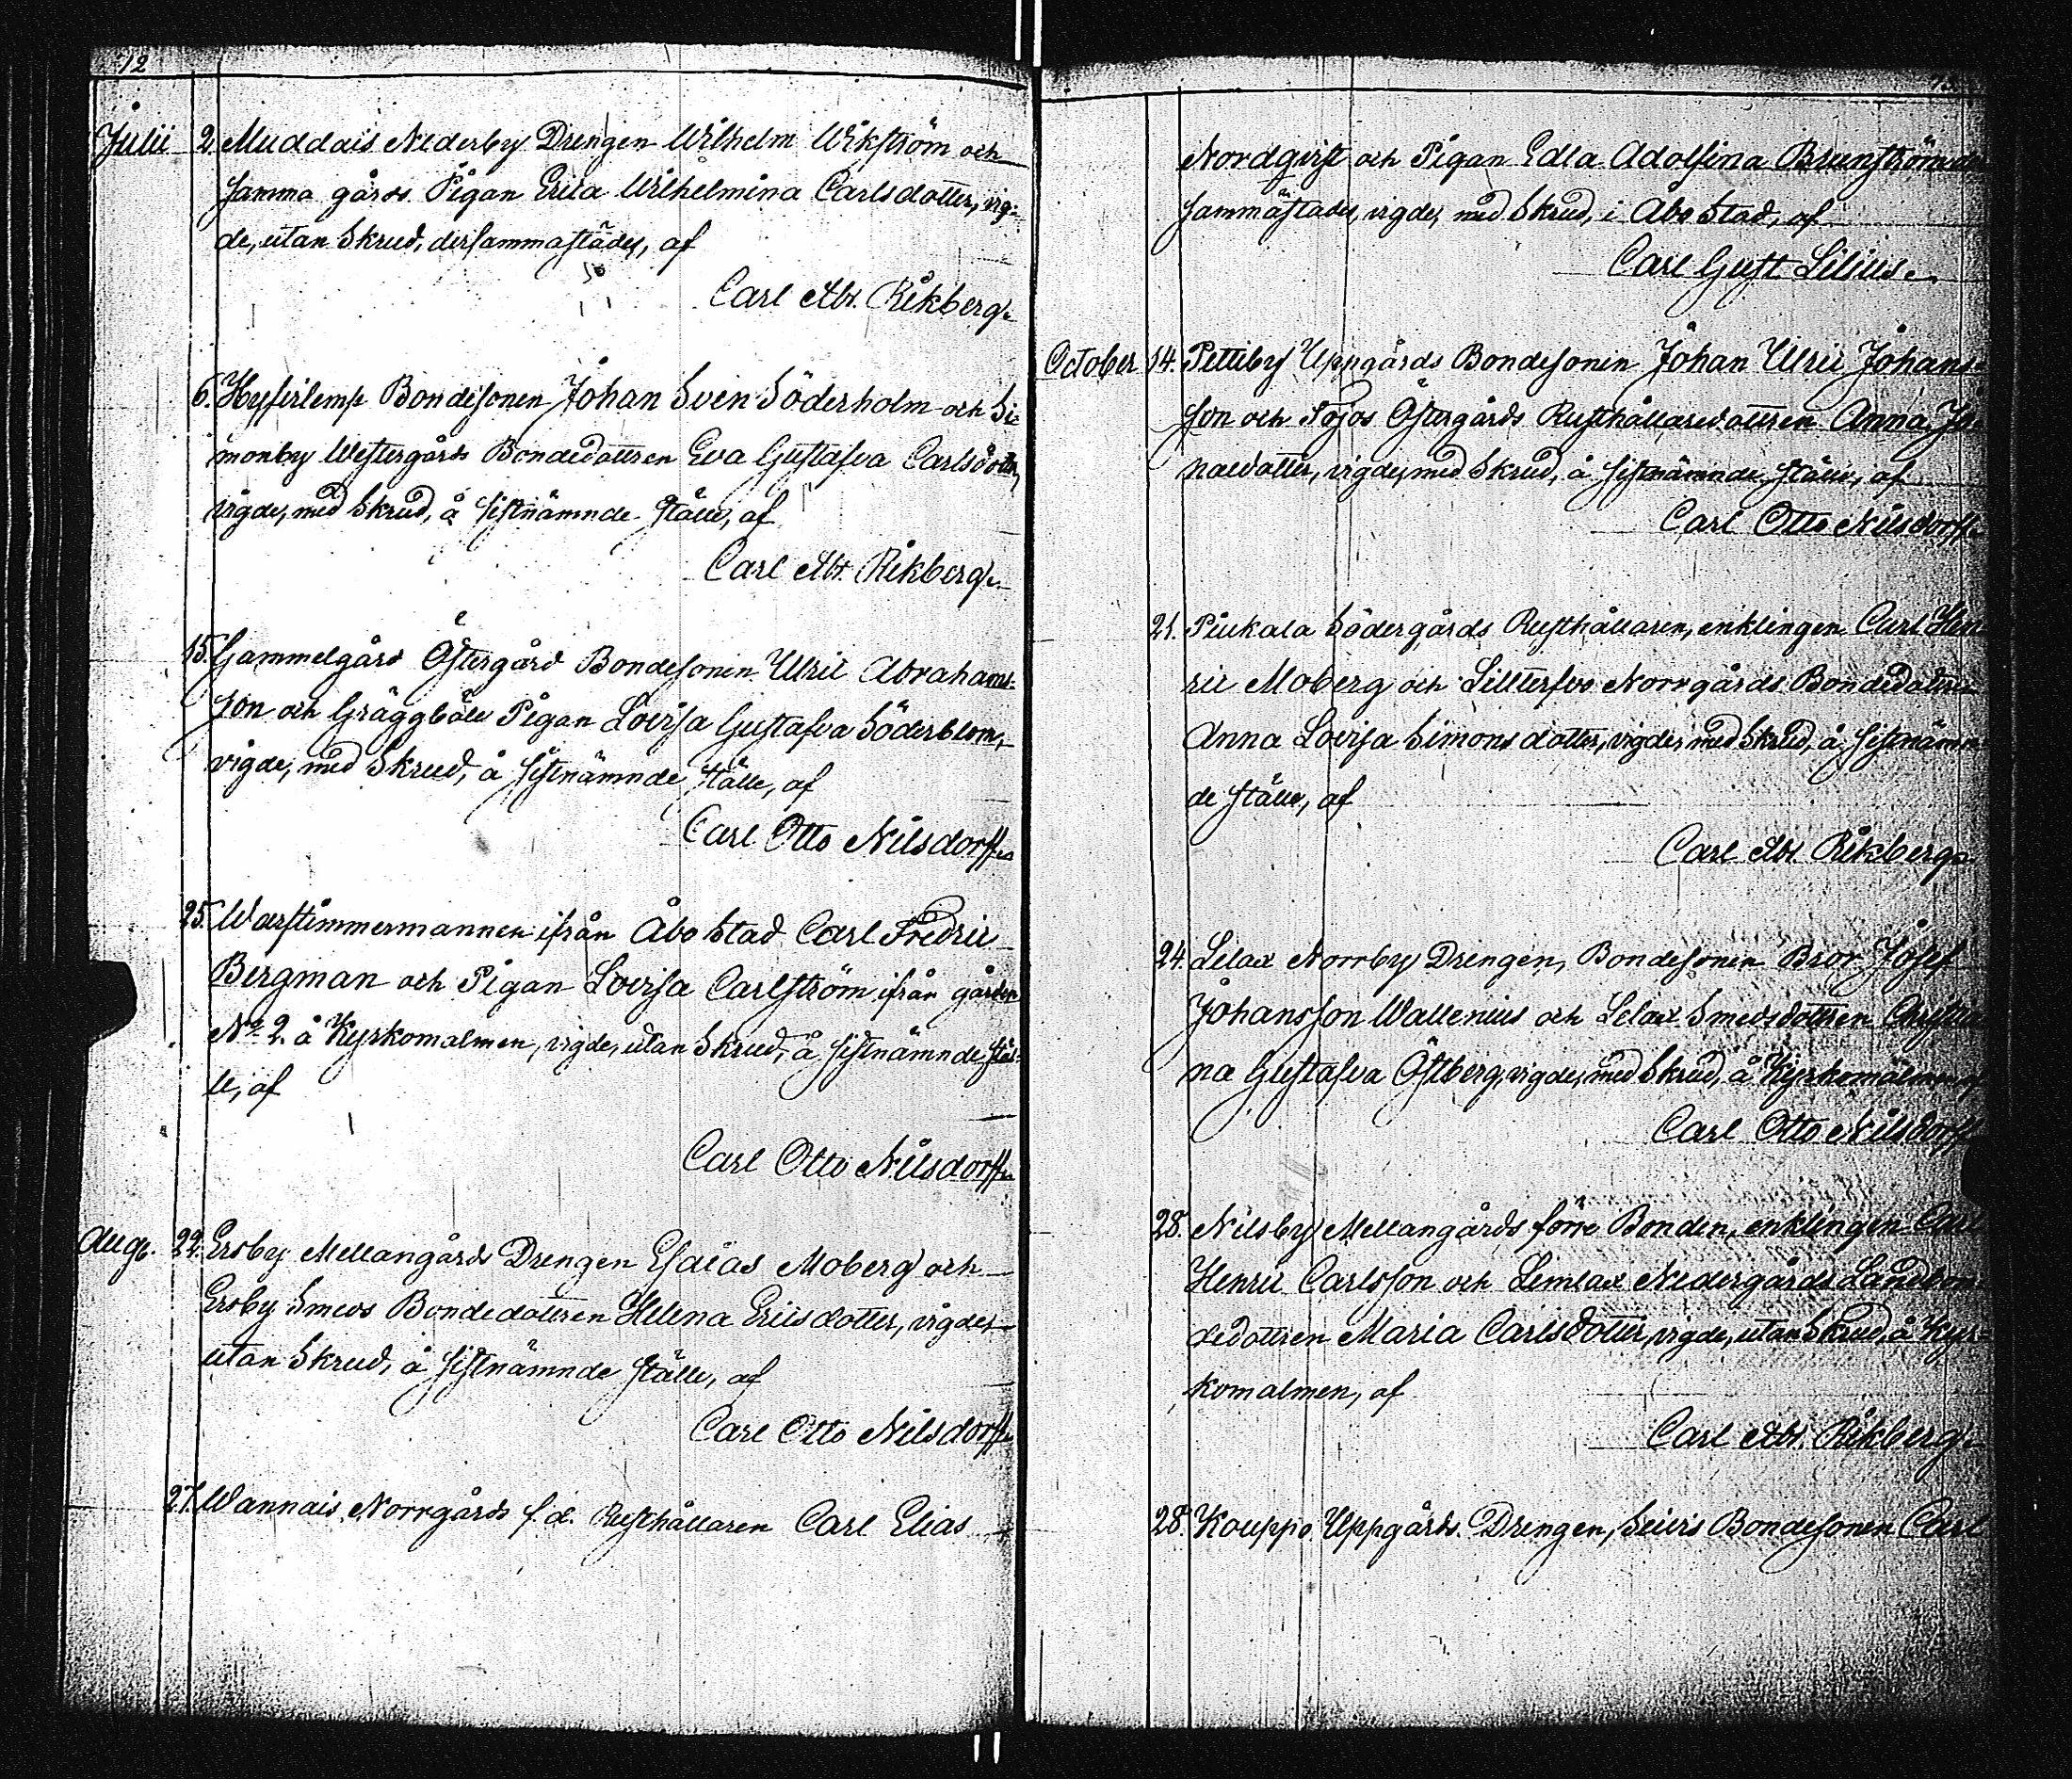 12
Julii 2. Muddais Nederby Drengen Wilhelm Wikström och
samma gårds Pigan Erica Wilhelmina Carlsdotter, vig-
de, utan Skrud, dersammastädes, af
Carl Abr. Rikberg.
6. Hyfirlemp Bondesonen Johan Sven Söderholm och Si-
monby Westergårds Bondedottren Eva Gustafva Carlsdotter,
vigde, med Skrud, å sistnämnde ställe, af
Carl Abr. Rikberg.
15. Gammelgård Östergård Bondesonen Ulric Abrahams-
son och Gräggböle Pigan Lovisa Gustafva Söderblom,
vigde, med Skrud, å sistnämnde ställe, af
Carl Otto Nilsdorff.
25. Warftimmermannen ifrån Åbo Stad Carl Fredric
Bergman och Pigan Lovisa Carlström ifrån gården
No 2. å Kyrkomalmen, vigde, utan Skrud, å sistnämnde stäl-
le, af
Carl Otto Nilsdorff.
Aug. 22. Ersby Mellangårds Drengen Esaias Moberg och
Ersby Smeds Bondedottren Helena Ericsdotter, vigde,
utan Skrud, å sistnämnde ställe, af
Carl Otto Nilsdorff.
27. Wannais Norrgårds f.d. Rusthållaren Carl Elias
Nordqvist och Pigan Edla Adolfina Brunström der-
sammastädes, vigde, med Skrud, i Åbo Stad, af
Carl Gust Lilius.
October 14. Pettiby Uppgårds Bondesonen Johan Ulric Johans-
son och Tojos Östergårds Rusthållaredottren Anna Jo-
naedotter, vigde, med Skrud, å sistnämnde ställe, af
Carl Otto Nilsdorff.
21. Piukala Södergårds Rusthållaren, enklingen Carl Hen-
ric Moberg och Norrgårds Bondedottren
Anna Lovisa Simonsdotter, vigde, med Skrud, å sistnämn-
de ställe, af
Carl Abr. Rikberg.
24. Lelax Norrby Drengen, Bondesonen Bror Josef
Johansson Wallenius och Lelax Smedsdottren Christi-
na Gustafva Östberg, vigde, med Skrud, å Kyrkomalmen, af
Carl Otto Nilsdorff.
28. Nilsby Mellangårds förre Bonden, enklingen Carl
Henric Carlsson och Lemlax Nedergårds Landbon-
dedottren Maria Carlsdotter, vigde, utan Skrud, å Kyr-
komalmen, af
Carl Abr. Rikberg.
28. Kouppo Uppgårds Drengen, Bondesonen Carl